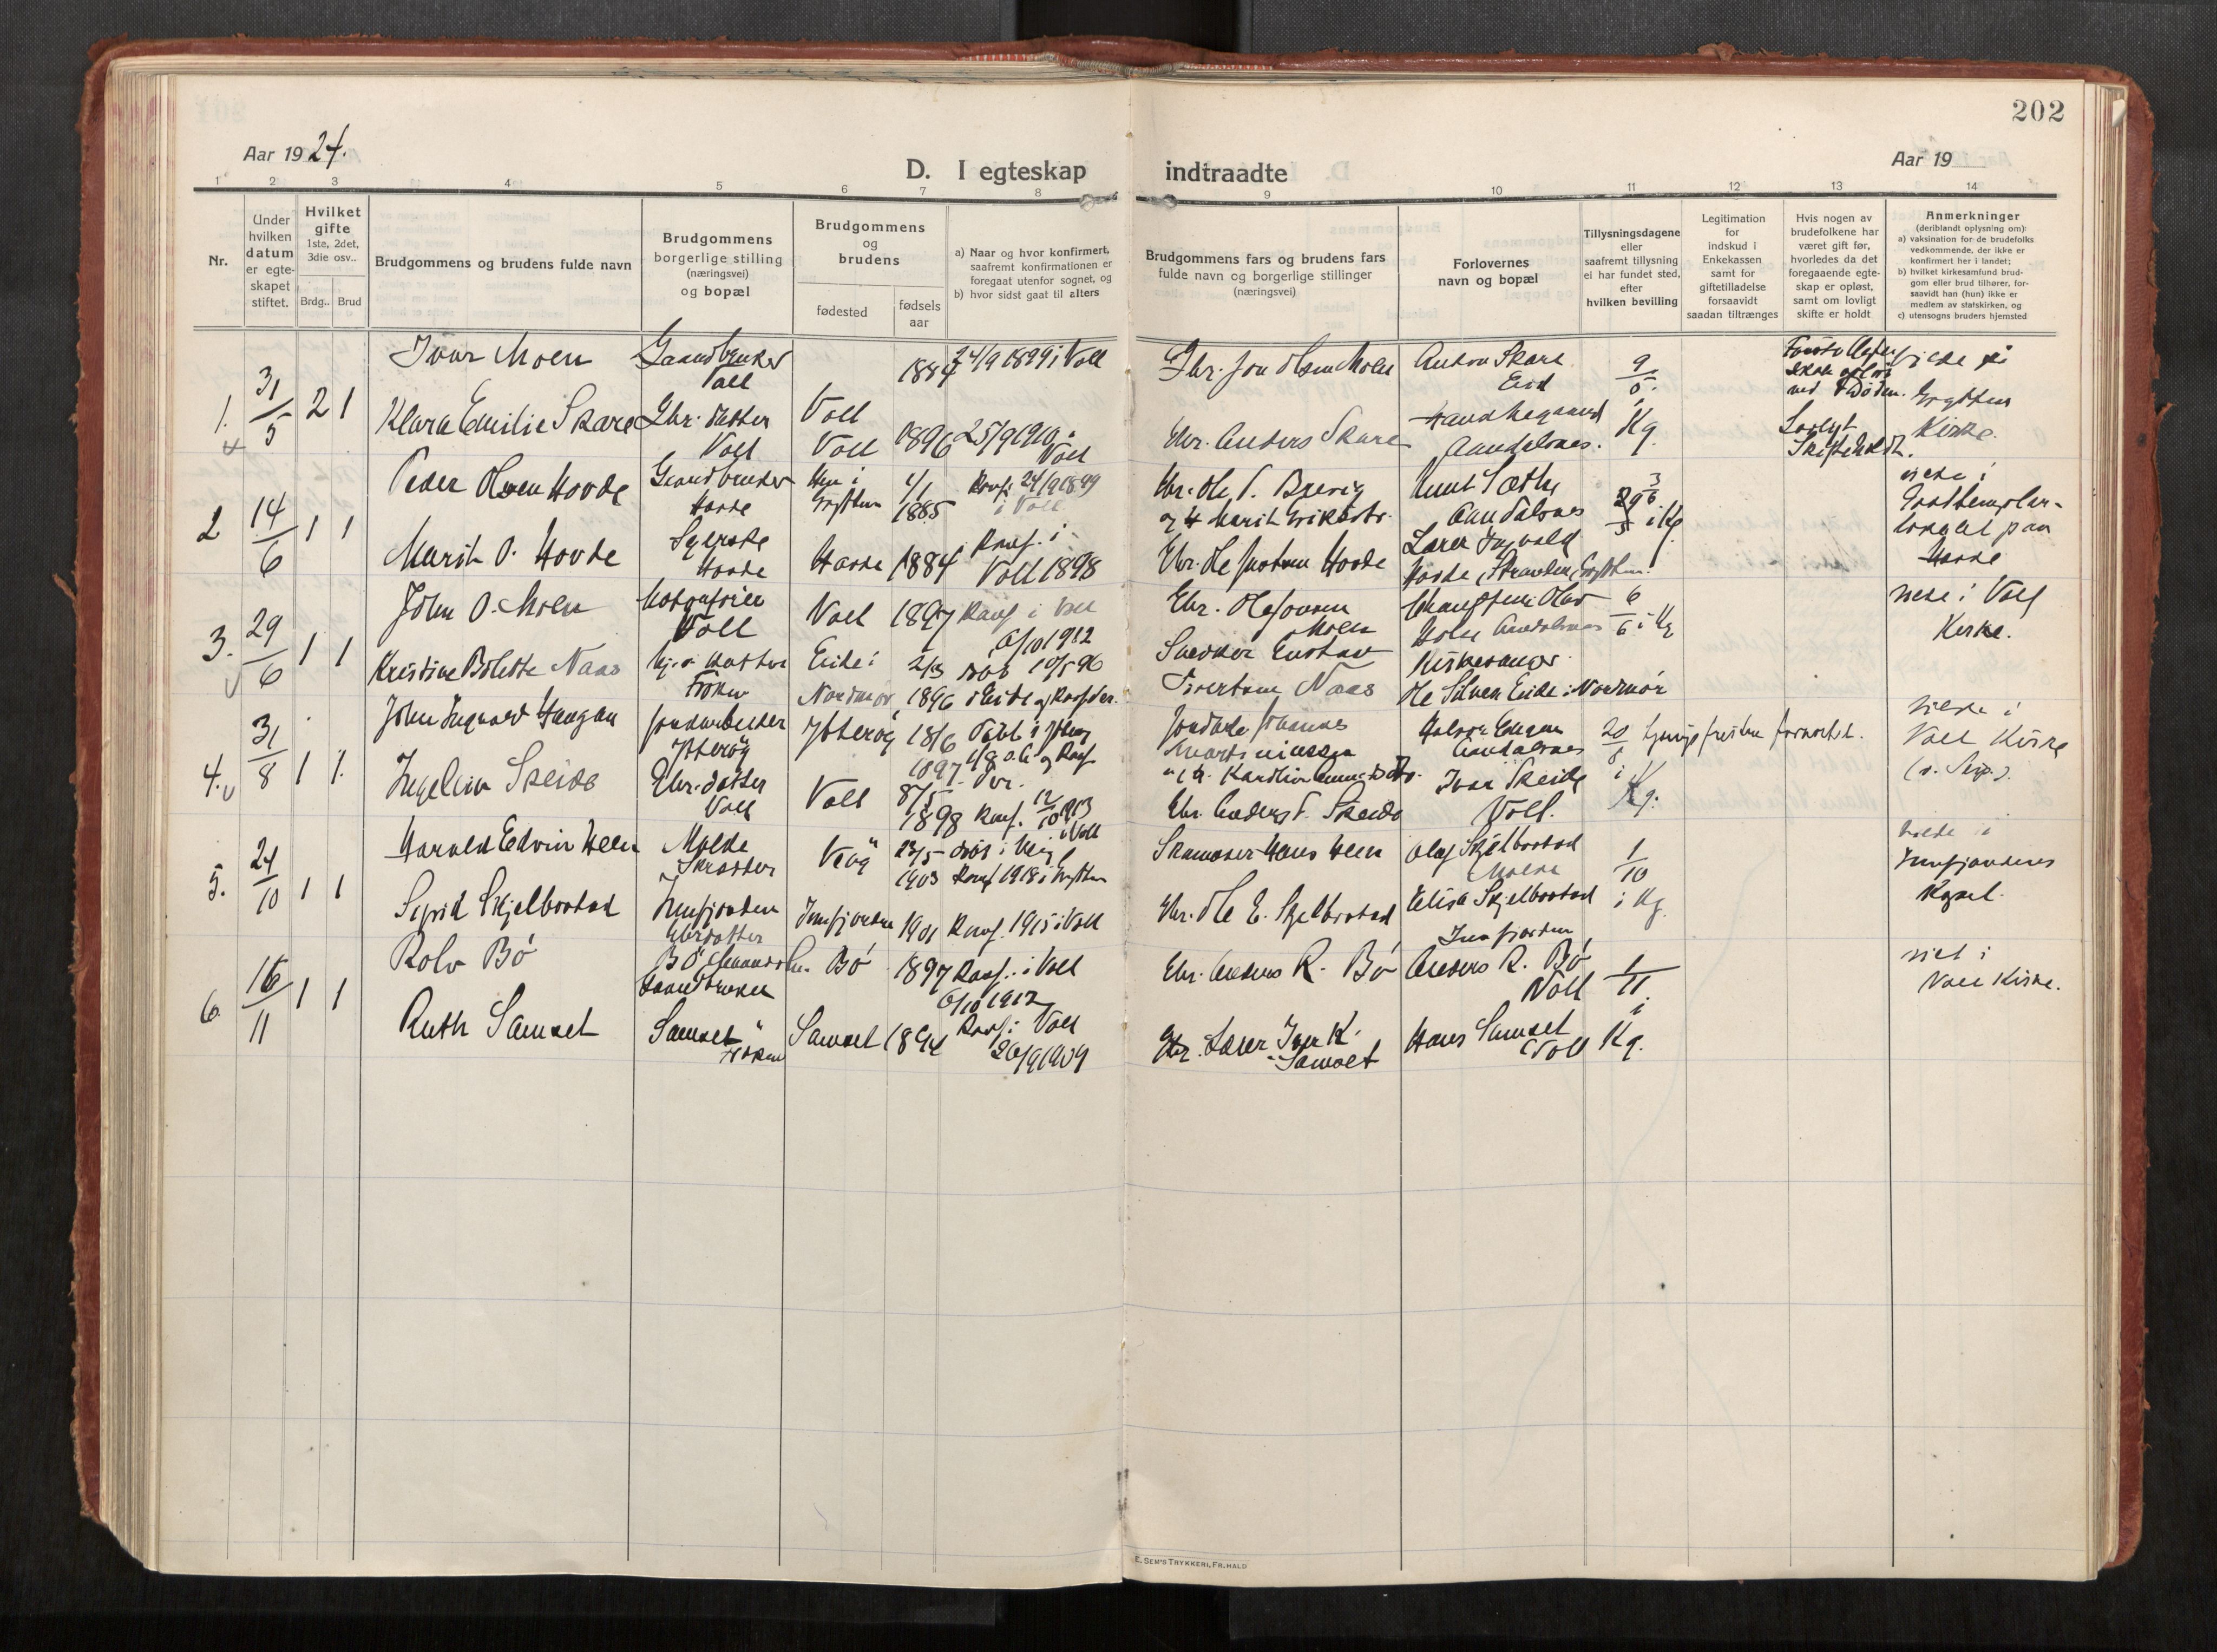 202
Aar 19 24.
Aar 19
D. I egteskap indtraadte
1 2 3 4 5 6 7 8 9 10 11 12 13 14
Nr.
Under hvilken datum er egteskapet stiftet.
Hvilket gifte
1ste, 2det, 3die osv..
Brdg.. Brud
Brudgommens og brudens fulde navn
Brudgommens borgerlige stilling (næringsvei) og bopæl
Brudgommens og brudens
fødested
fødsels aar
a) Naar og hvor konfirmert, saafremt konfirmationen er foregaat utenfor sognet, og
b) hvor sidst gaat til alters
Brudgommens fars og brudens fars fulde navn og borgerlige stillinger (næringsvei)
Forlovernes navn og bopæl
Tillysningsdagene eller saafremt tillysning ei har fundet sted, efter hvilken bevilling
Legitimation for indskud i Enkekassen samt for giftetilladelse forsaavidt saadan tiltrænges
Hvis nogen av brudefolkene har været gift før, hvorledes da det foregaaende egteskap er opløst, samt om lovligt skifte er holdt
Anmerkninger
(deriblandt oplysning om):
a) vaksination for de brudefolks vedkommende, der ikke er konfirmert her i landet;
b) hvilket kirkesamfund brudgom eller brud tilhører, forsaavidt han (hun) ikke er medlem av statskirken, og
c) utensogns bruders hjemsted
1. 31/5 2 1
Ivar Moen Gaardbruker Voll Voll 1884 24/9 1899 i Voll
Gbr. Jon Olsen Moen Anton Skare Eid 9/5 i Kg.
ved Døden. Lovlyt Skifte holdt.
Grytten Kirke.
Klara Emilie Skare Gbr. datter Voll Voll 1896 25/9 1910 i Voll
Gbr. Anders Skare Aandalsnes.
2 14/6 1 1
Peder Olsen Hovde Gaardbruker Hovde Hen i Grytten 1/1 1885 Konf. 24/9 1899 i Voll
Gbr. Ole P. Brevig Knut Sæthre Aandalsnes 3/6 i Kg.
viede i Godtemplarlokalet paa Hovde
Marit O. Hovde Syerske Hovde Hovde 1884 Konf. i Voll 1898
Gbr. Ole Hovde Lærer Ingvald Hovde, Stranden, Grytten.
3. 29/6 1 1
John O. Moen Voll Voll 1897 Konf. i Voll 6/10 1912
Gbr. Ole Jonsen Moen Aandalsnes 6/6 i Kg
viede i Voll Kirke.
Kristine Bolette Naas Frøken Eide i Nordmør 2/3 1896 døb 10/5 96 i Eide og Konf. der.
Snedker Gustav Sivertsen Naas Kirkesanger Ole Silnes Eide i Nordmør
4. 31/8 1 1.
John Ingvard Haugan Jordarbeider Ytterøy Ytterøy 18/6 1897
Jordarb. Johannes Martiniussen Aandalsnes 20/8 i Kg.
viede i Voll Kirke
Ingelina Skeide Gbr. datter Voll Voll 8/5 1898 Konf. 12/10 1913 i Voll
Gbr. Anders P. Skeide Ivar Skeide Voll.
5. 24/10 1 1
Harald Edvin Heen Molde Skrædder Veøy 22/5 1903 døbt i Veøy Konf 1918 i Grytten
Skomaker Hans Heen Olaf Skjelbostad Molde 1/10 i Kg.
viede i Innfjordens Kapel.
Sigrid Skjelbostad Innfjorden Gbrdatter Innfjorden 1901 Konf. 1915 i Voll
Gbr. Ole E. Skjelbostad Elise Skjelbostad Innfjorden
6. 16/11 1 1
Rolv Bø Bø Gaardbruker Bø 1897 Konf. i Voll 6/10 1912
Gbr. Anders R. Bø Anders R. Bø Voll 1/11 i Kg.
viet i Voll Kirke.
Ruth Samset Samset Frøken Samset 1894 Konf. i Voll 26/9 1909
Gbr. Lærer Iver K. Samset Hans Samset Voll
E. SEM'S TRYKKERI, FR. HALD